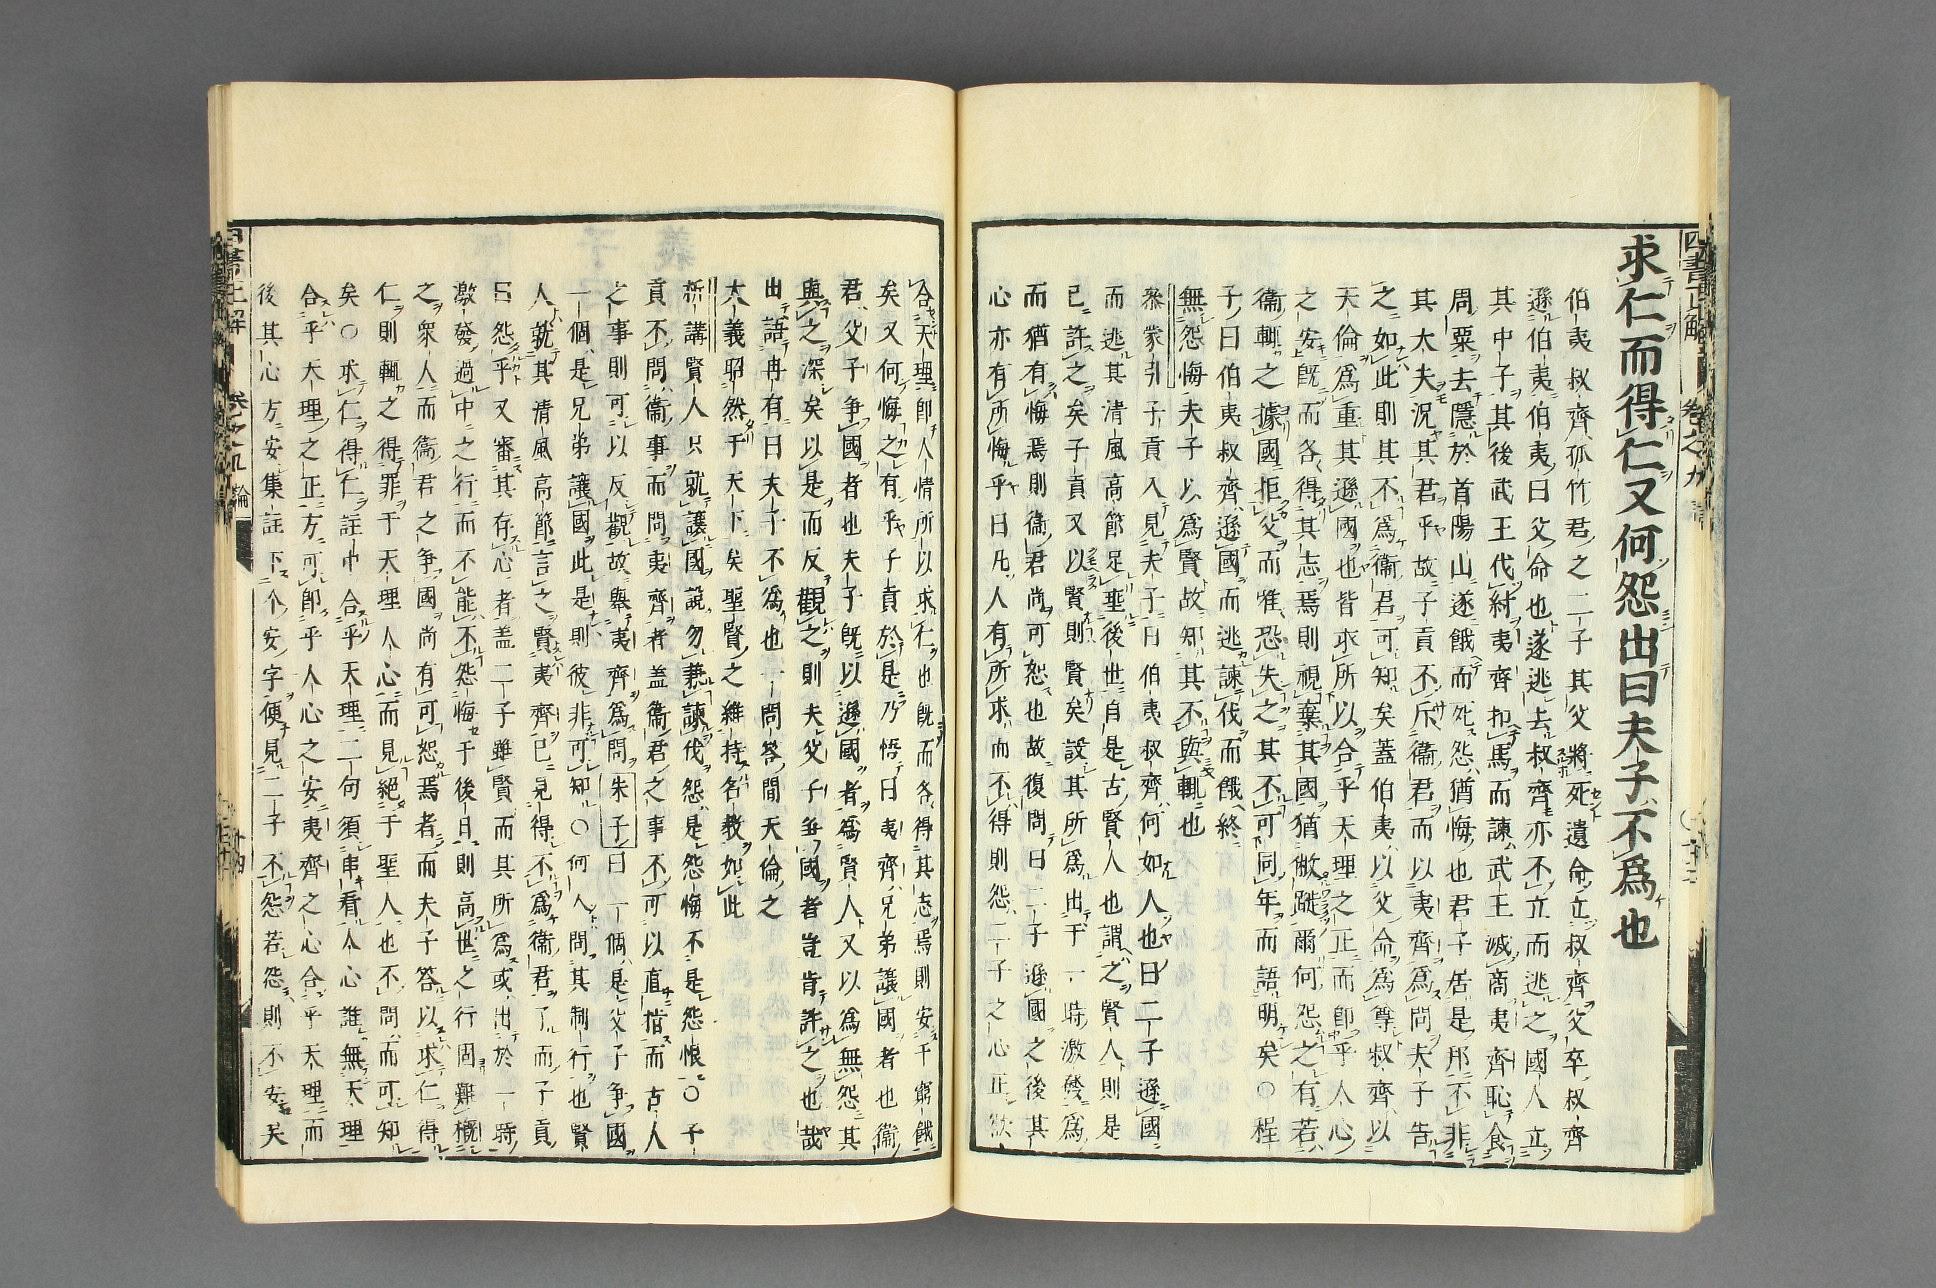 求仁而得仁又何怨出曰夫子不為也
伯夷叔齊孤竹君之二子其父將死遺命立叔齊父卒叔齊
遜伯夷伯夷曰父命也遂逃去叔齊亦不立而逃之國人立
其中子其後武王伐紂夷齊扣馬而諫武王滅商夷齊恥食
周粟去隱於首陽山遂餓而死怨猶悔也君子居是邦不非
其大夫況其君乎故子貢不斥衞君而以夷齊為問夫子告
之如此則其不為衞君可知矣蓋伯夷以父命為尊叔齊以
天倫為重其遜國也皆求所以合乎天理之正而卽乎人心
之安旣而各得其志焉則視棄其國猶敝蹝爾何怨之有若
衞輒之據國拒父而惟恐失之其不可同年而語明矣〇程
子曰伯夷叔齊遜國而逃諫伐而餓終
無怨悔夫子以為賢故知其不與輒也
蒙引子貢入見夫子曰伯夷叔齊何如人也曰二子遜國
而逃其清風高節足垂後世自是古賢人也謂之賢人則是
已許之矣子貢又以賢則賢矣設其所為出于一時激發為
而猶有悔焉則衞君尚可恕也故復問曰二子遜國之後其
心亦有所悔乎曰凡人有所求而不得則怨二子之心正欲
合天理卽人情所以求仁也旣而各得其志焉則安于窮餓
矣又何悔之有乎子貢於是乃悟曰夷齊兄弟讓國者也衞
君父子爭國者也夫子旣以遜國者為賢人又以為無怨其
與之深矣以是而反觀之則夫父子爭國者豈肯許之也哉
出語冉有曰夫子不為也一問答間天倫之
大義昭然于天下矣聖賢之維持名教如此
析講賢人只就讓國說勿兼諫伐怨是怨悔不是怨恨〇子
貢不問衞事而問夷齊者蓋衞君之事不可以直指而古人
之事則可以反觀故舉夷齊為問朱子曰一個是父子爭國
一個是兄弟讓國此是則彼非可知〇何人問其制行也賢
人就其清風高節言之賢夷齊已見得不為衞君了而子貢
曰怨乎又審其存心者蓋二子雖賢而其所為或出於一時
激發過中之行而不能不怨悔于後日則高世之行固難概
之衆人而衞君之爭國尚有可恕焉者而夫子答以求仁得
仁則輒之得罪于天理人心而見絕于聖人也不問而可知
矣〇求仁得仁註中合乎天理二何須串看人心誰無天理
合乎天理之正方可卽乎人心之安夷齊之心合乎天理而
後其心方安集註下个安字便見二子不怨若怨則不安矣